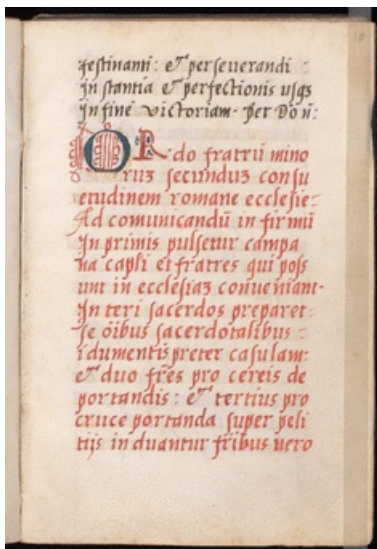 festinami: et perseuerandi
instantia et perfectionis usqz
in fine victoriam. Per Do n̄:
ORdo fratrū mino
ruz secunduz consu
etudinem romane ecclesie:
Ad comunicandū in firmū
In primis pulsetur campa
na capli et fratres qui poss
unt in ecclesiaz conueniant.
In teri sacerdos preparet
se ōibus sacerdotalibus :
idumentis preter casulam:
et duo fr̄es pro cereis de
portandis : et tertius pro
cruce portanda super peli
tijs in duantur fr̄ibus uero